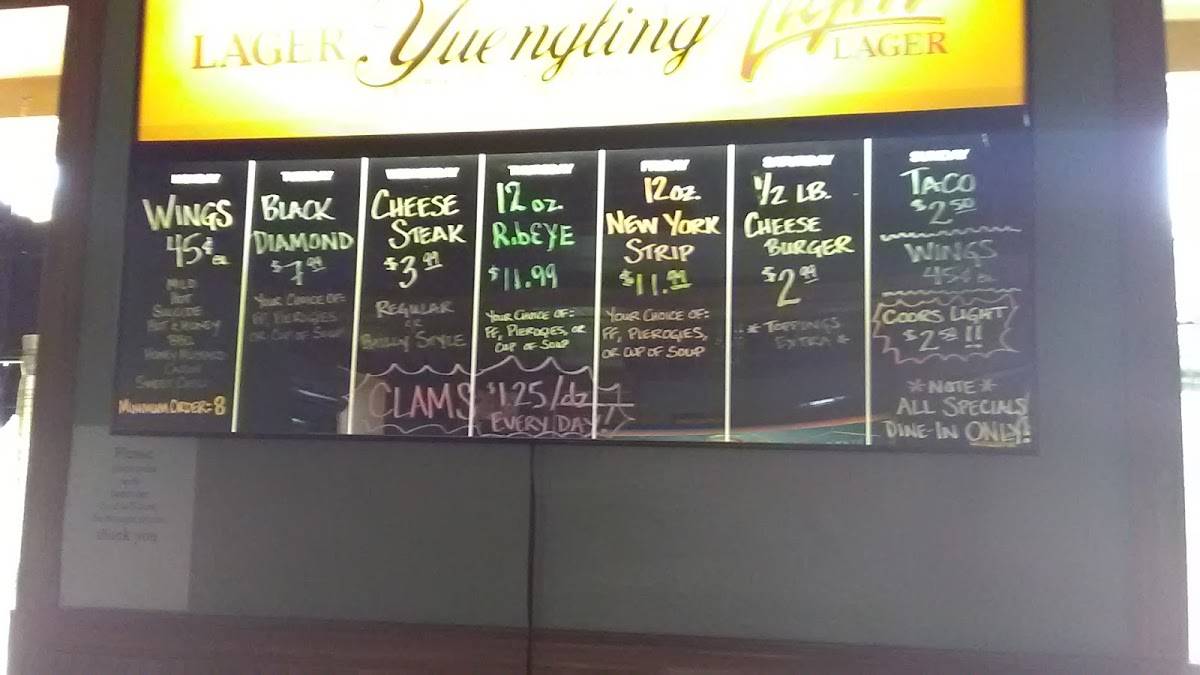 LAGER Yuengling Light LAGER
MONDAY
WINGS
45¢ ea.
MILD
HOT
SUICIDE
HOT & HONEY
BBQ
HONEY MUSTARD
CAJUN
SWEET CHILI
MINIMUM ORDER: 8
TUESDAY
BLACK
DIAMOND
$7.99
YOUR CHOICE OF:
FF, PIEROGIES,
OR CUP OF SOUP
WEDNESDAY
CHEESE
STEAK
$3.99
REGULAR
OR
PHILLY STYLE
THURSDAY
12 oz.
RibEYE
$11.99
YOUR CHOICE OF:
FF, PIEROGIES, OR
CUP OF SOUP
CLAMS $1.25/dz
EVERY DAY!!
FRIDAY
12 oz.
NEW YORK
STRIP
$11.99
YOUR CHOICE OF:
FF, PIEROGIES,
OR CUP OF SOUP
SATURDAY
1/2 LB.
CHEESE
BURGER
$2.99
* TOPPINGS
EXTRA *
SUNDAY
TACO
$2.50
WINGS
45¢ ea.
COORS LIGHT
$2.50!!
* NOTE *
ALL SPECIALS
DINE-IN ONLY!
Please
thank you